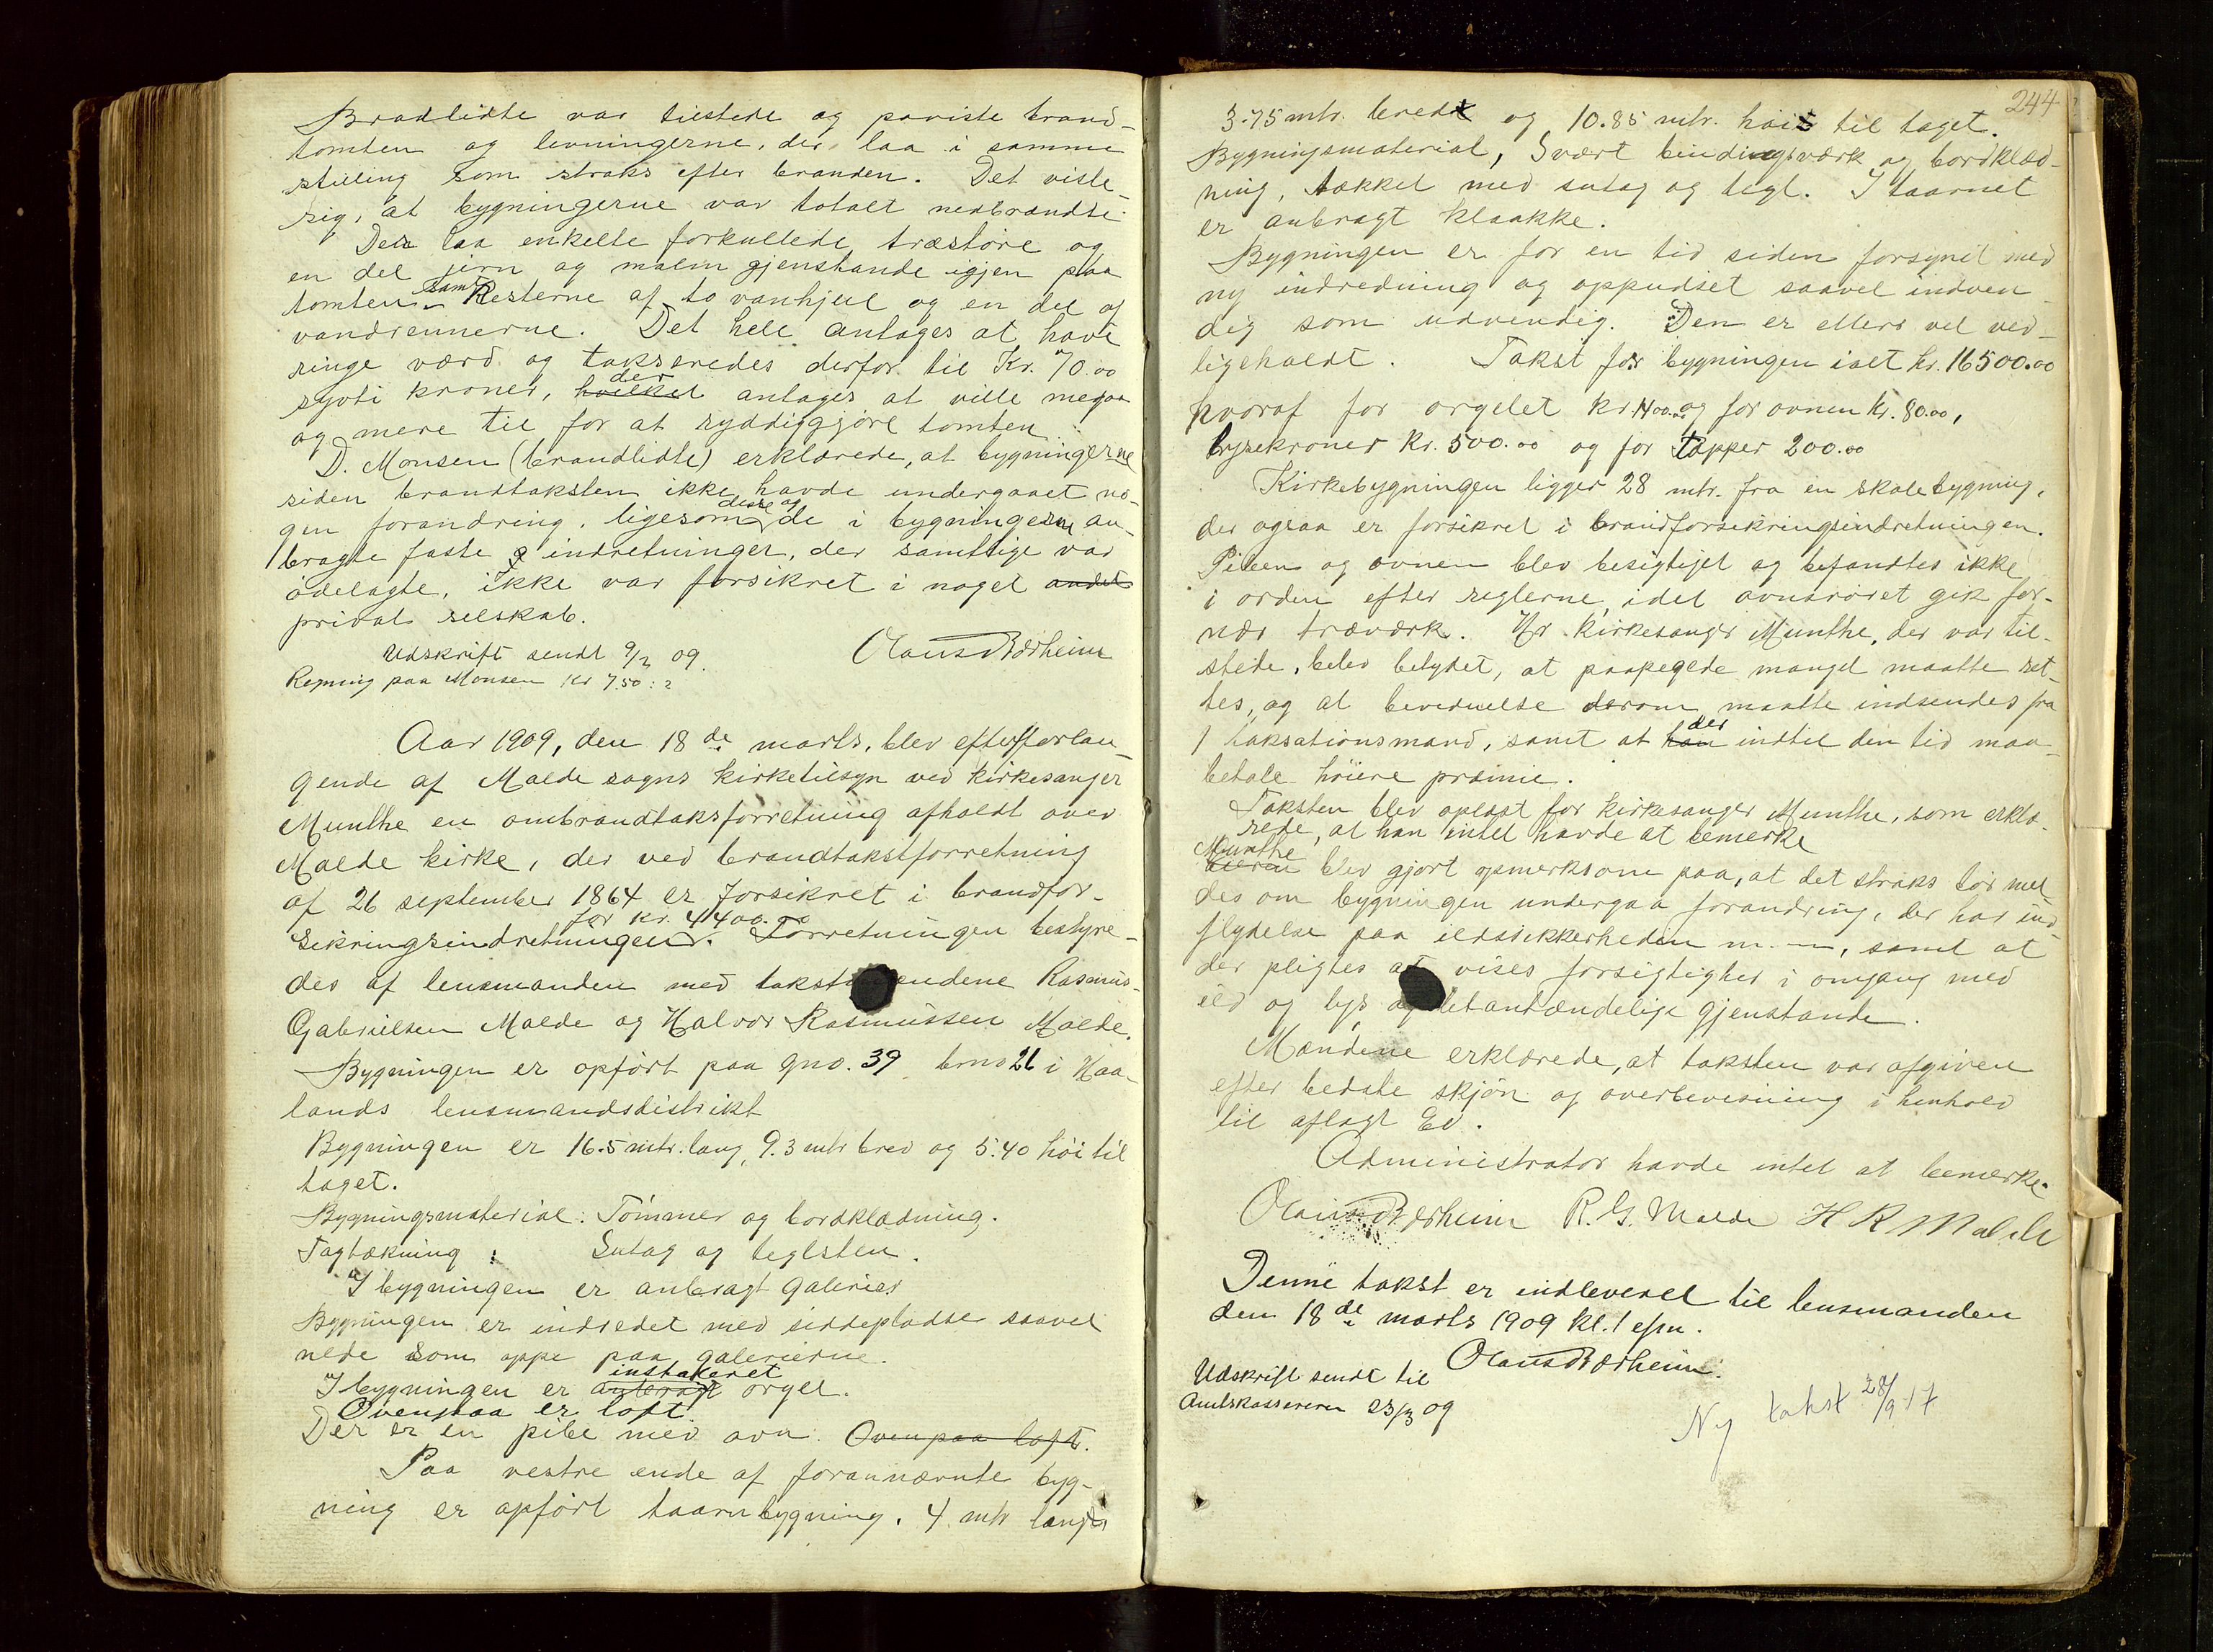 Bradlidte var tilstede og paviste brand-
tomten og levningerne, der laa i samme
stilling som straks efter branden. Det viste
sig, at bygningerne var totalt nedbrændte.
Der laa enkelte forkullede træstøre og
en del jern og malm gjenstande igjen paa
tomten samt Resterne af to vanhjul og en del af
vandrennerne. Det hele antages at have
ringe værd og takseredes derfor til Kr. 70.00
sytti kroner, hvilket der antages at ville megaa
og mere til for at ryddiggjøre tomten.
D. Monsen (brandlidte) erklærede, at bygningerne
siden brandtaksten ikke havde undergaaet no-
gen forandring, ligesom disse og de i bygningerne an-
bragte faste indretninger, der samtlige var
ødelagte, ikke var forsikret i noget andet
privat selskab.
Udskrift sendt 9/2 09. Olaus Bærheim
Regning paa Monsen Kr 7.50 : 2
Aar 1909, den 18de marts, blev efter forlan-
gende af Malde sogns kirketilsyn ved kirkesanger
Munthe en ombrandtaksforretning afholdt over
Malde kirke, der ved brandtakstforretning
af 26 september 1864 er forsikret i brandfor-
for kr. 4400.00
sikringsindretningen. Forretningen bestyre-
des af lensmanden med takstmændene Rasmus
Gabrielsen Malde og Halvor Rasmussen Malde.
Bygningen er opført paa gno. 39 bno 21 i Haa-
lands lensmandsdistrikt
Bygningen er 16.5 mtr. lang, 9.3 mtr bred og 5.40 høi til
taget.
Bygningsmaterial: Tømmer og bordklædning.
Tagtækning : Sutag og teglsten.
I bygningen er anbragt galerier
Bygningen er indredet med siddepladse saavel
nede som oppe paa galerierne.
I bygningen er anbragt installeret orgel.
Ovenpaa er loft
Der er en pibe med ovn. Ovenpaa loft.
Paa vestre ende af forannævnte byg-
ning er opført taarnbygning, 4 mtr lang
244
3.75 mtr. bredt og 10.85 mtr. høi til taget.
Bygningsmaterial, Svært bindingsværk og bordklæd-
ning, tækket med sutag og tegl. I taarnet
er anbragt klaakke.
Bygningen er for en tid siden forsynet med
ny indredning og oppudset saavel indven-
dig som udvendig. Den er ellers vel ved-
ligeholdt. Takst for bygningen ialt kr. 16500.00
hvoraf for orgelet kr. 1400.00 og for ovnen Kr. 80.00,
lysekroner Kr. 500.00 og for Tæpper 200.00
Kirkebygningen ligger 28 mtr. fra en skolebygning,
der ogsaa er forsikret i brandforsikringsindretningen.
Piben og ovnen blev besigtiget og befandtes ikke
i orden efter reglerne, idet ovnsrøret gik for-
nær træværk. Hr. Kirkesanger Munthe, der var til-
stede, blev betydet, at paapegede mangel maatte ret-
tes, og at bevidnelse derom maatte indsendes fra
1 taksationsmand, samt at han der indtil den tid maa
betale høiere præmie.
Taksten blev oplæst for kirkesanger Munthe, som erklæ-
rede, at han intet havde at bemerke
Munthe
blev gjort opmerksom paa, at det straks bør mel-
des om bygningen undergaa forandring, der har ind-
flydelse paa ildsikkerheden m. m., samt at
der pligtes at vises forsigtighed i omgang med
ild og lys og letantændelige gjenstande.
Mændene erklærede, at taksten var afgiven
efter bedste skjøn og overbevisning i henhold
til aflagt Ed.
Administrator havde intet at bemerke.
Olaus Bærheim R. G. Malde H R Malde
Denne takst er indleveret til lensmanden
den 18de marts 1909 kl. 1 efm.
Olaus Bærheim.
Udskrift sendt til
Amtskassereren 23/3 09
Ny takst 28/9 17